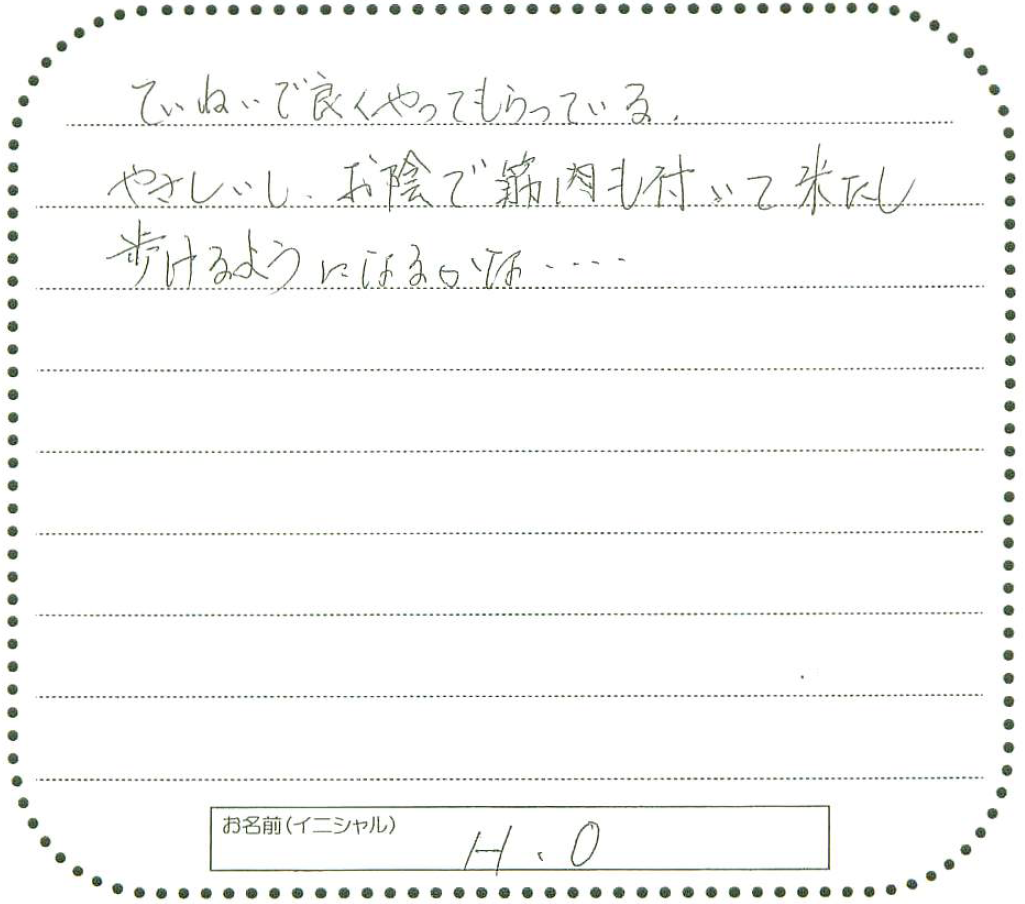 ていねいで良くやってもらっている.
やさしいし、お陰で筋肉も付いて来たし
歩けるようにはなるかな‥‥
お名前(イニシャル)
H.O